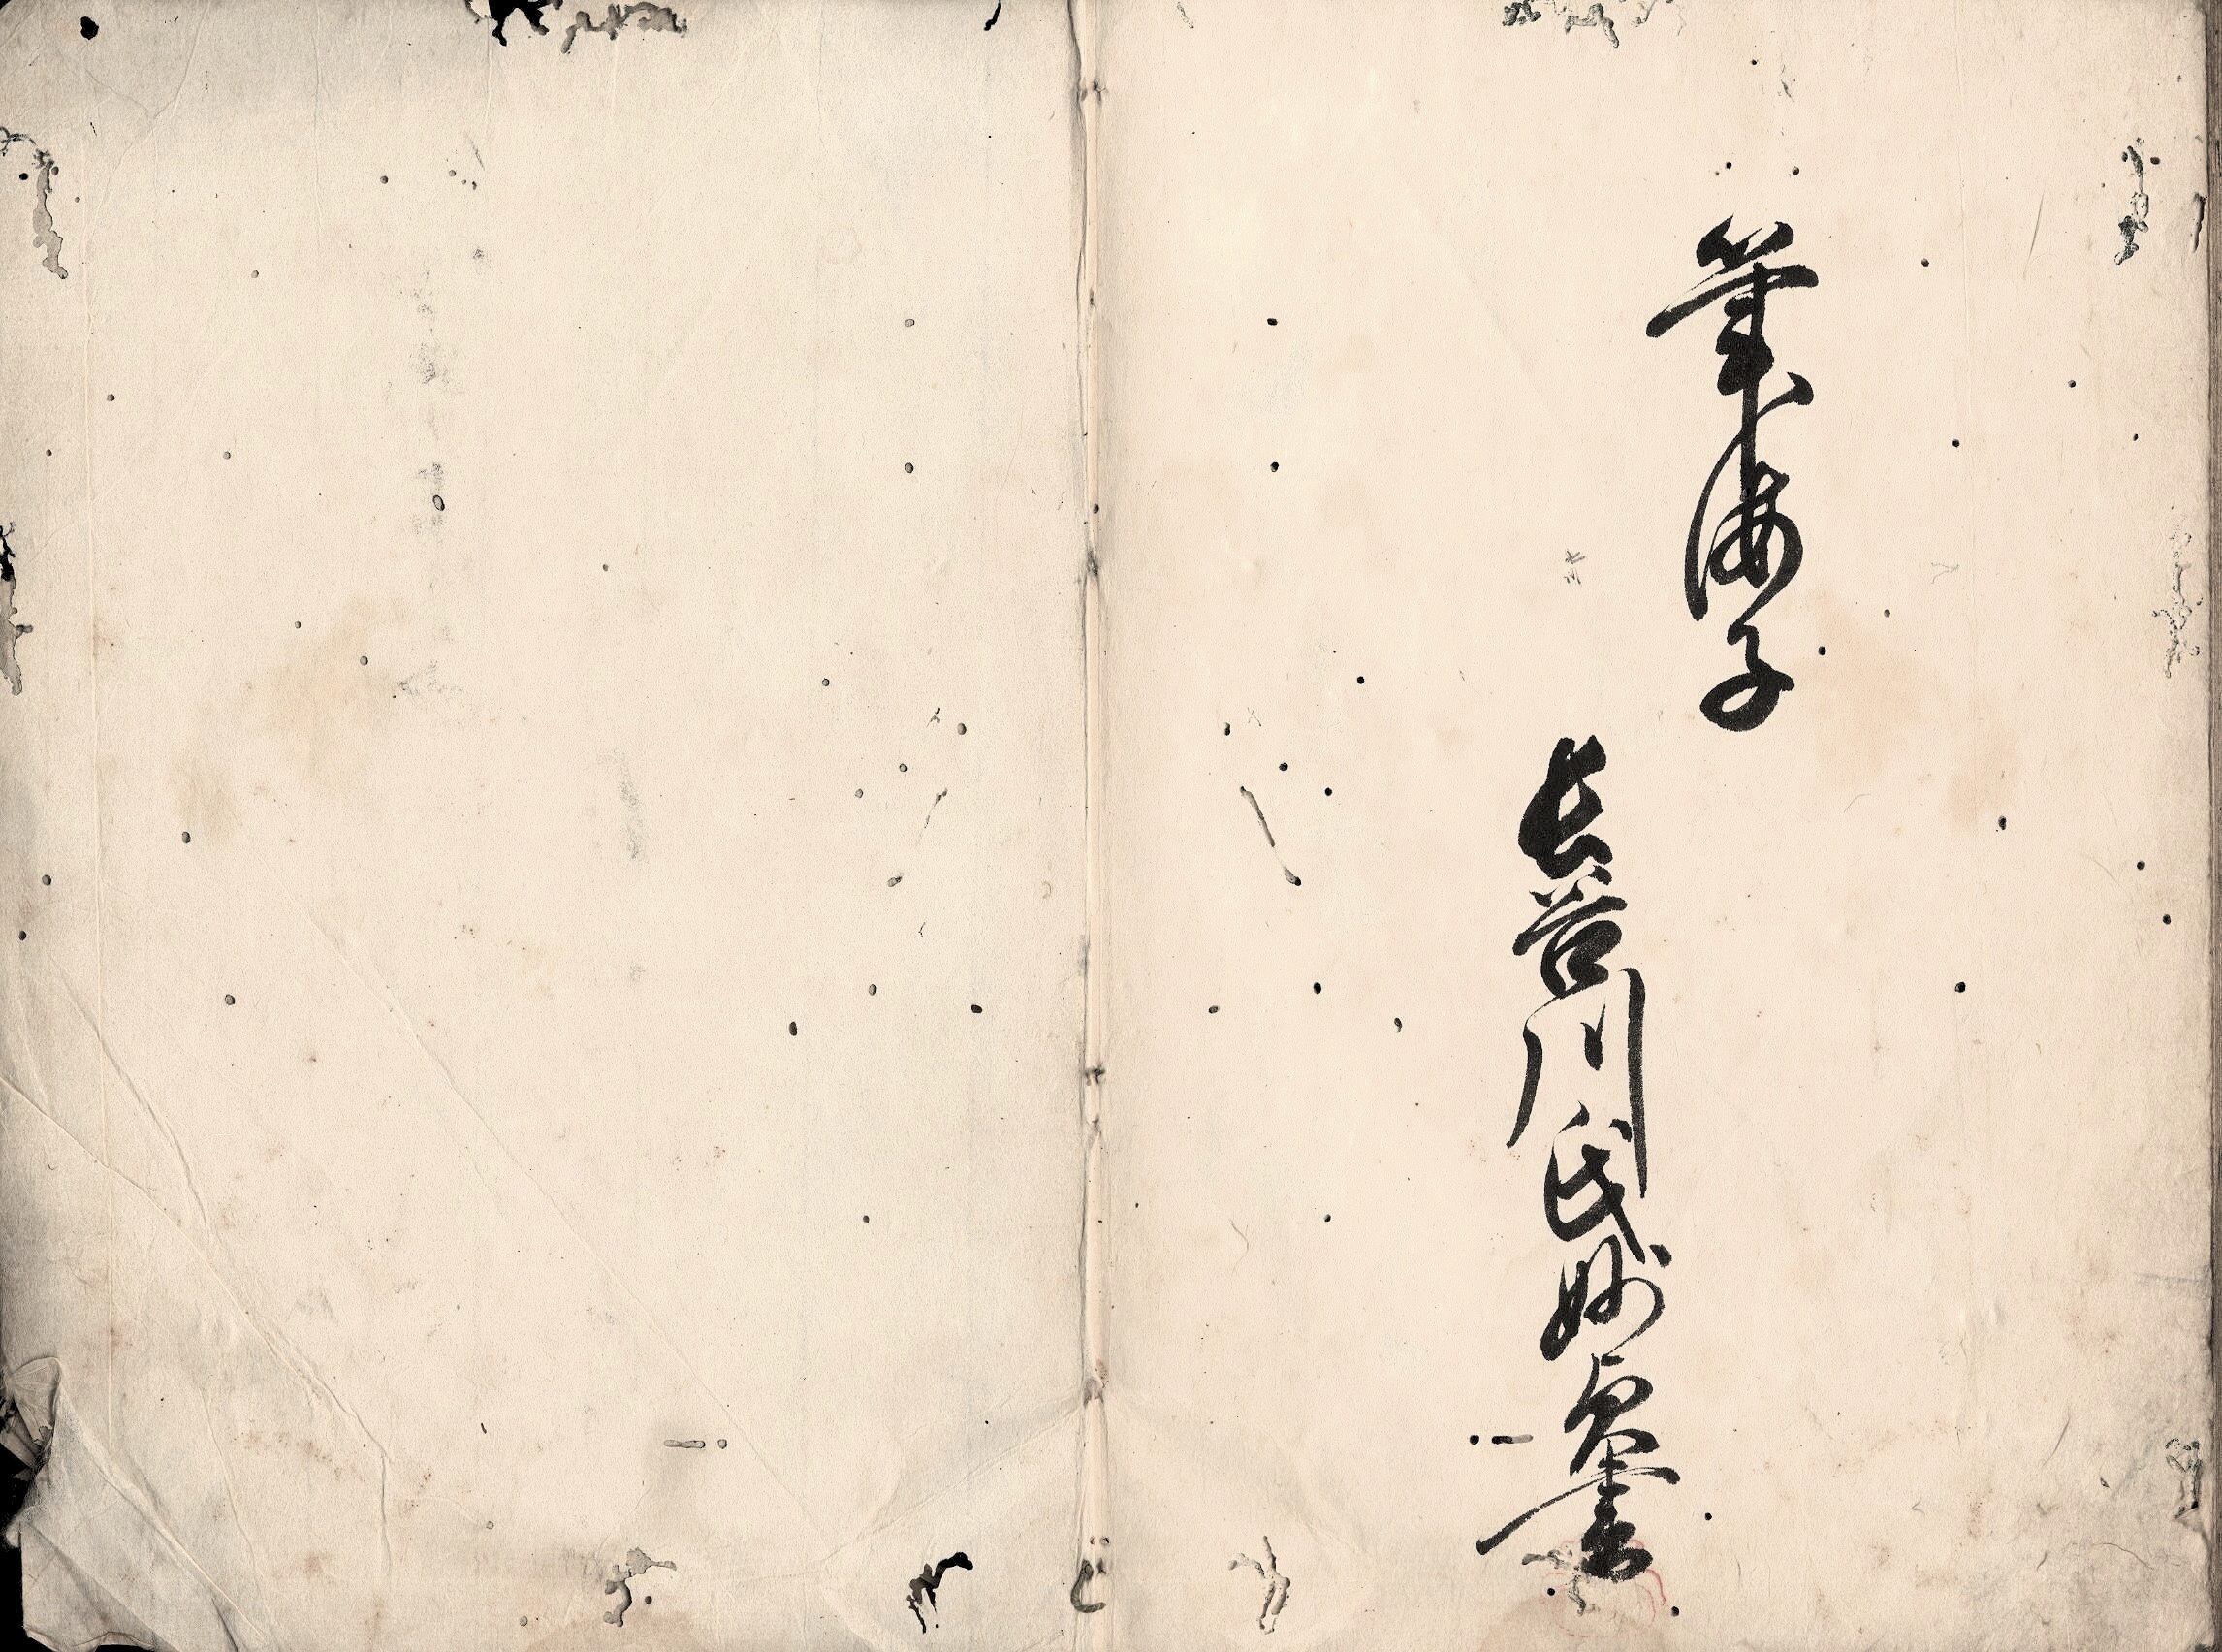 筆海子
長谷川氏妙貞書